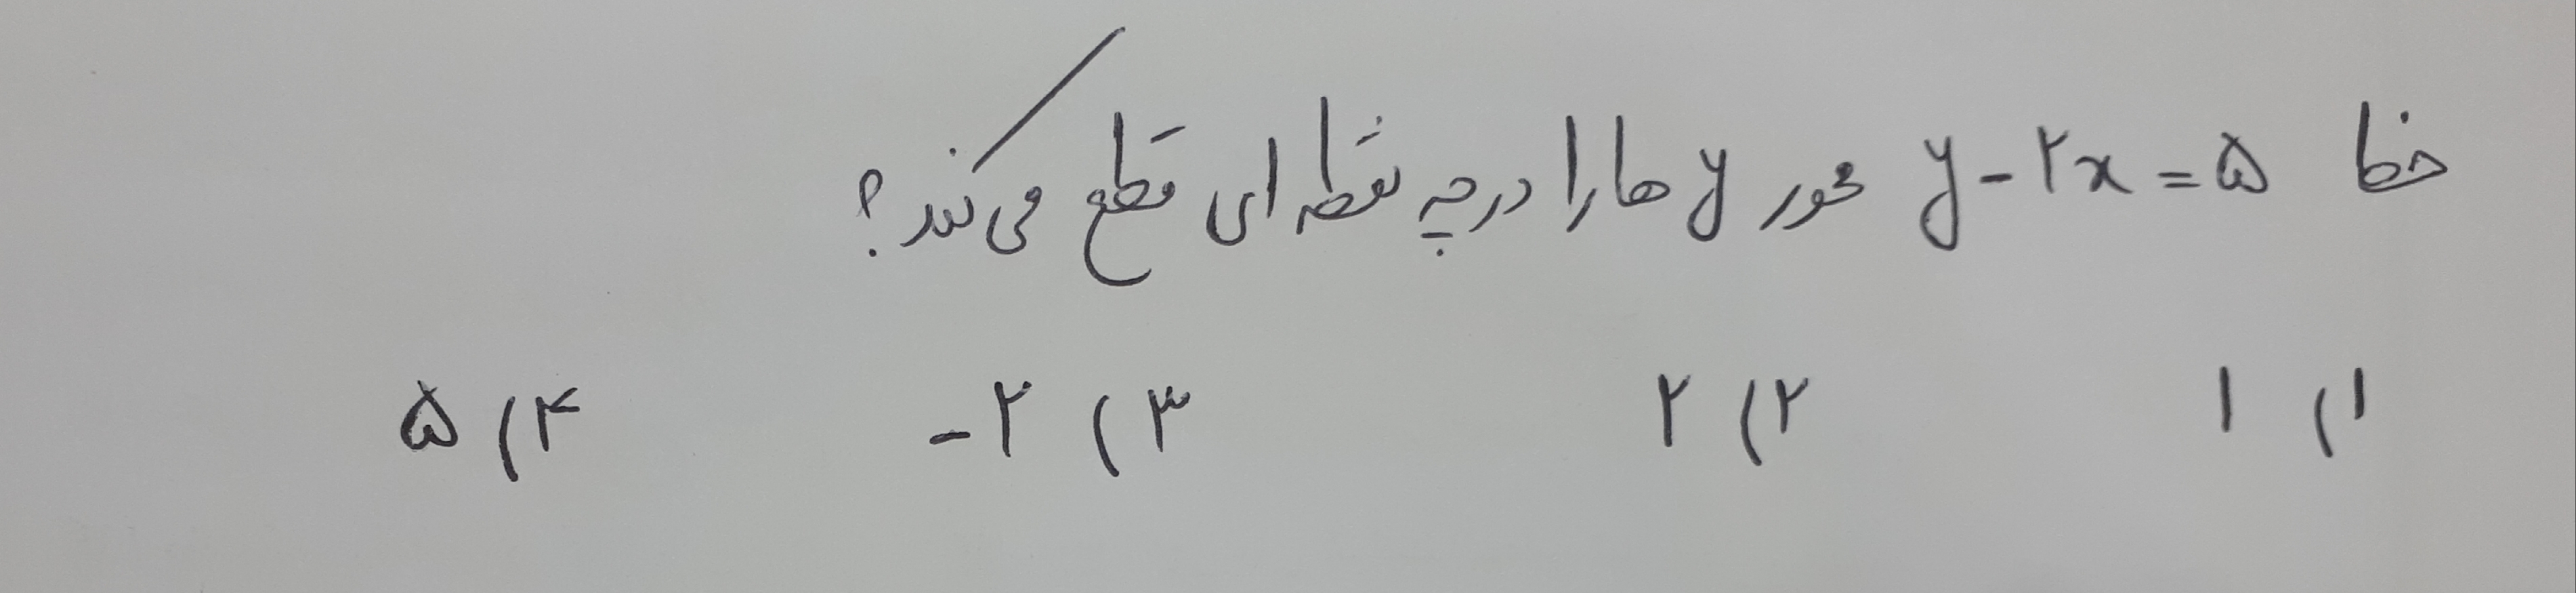 خط y - ۲x = ۵ محور y ها را در چه نقطه ای قطع می کند؟
۱) ۱ ۲) ۲ ۳) -۲ ۴) ۵